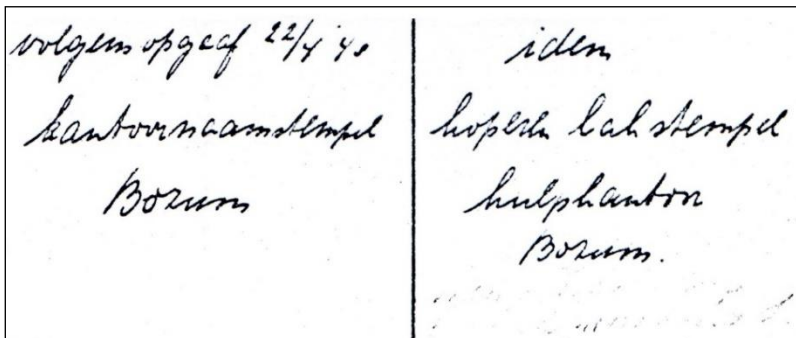 volgens opgaaf 22/4 '40
kantoornaamstempel
Bozum
idem
koperen lak stempel
hulpkantoor
Bozum.